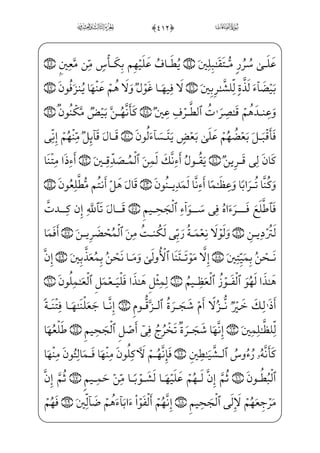 سُورَةُ الصَّافَّاتِ ﴿٤١٢﴾ الْجُزْءُ الثَّالِثُ وَالْعِشْرُونَ
عَلَىٰ سُرُرٍ مُّتَقَـٰبِلِينَ ٤٤ يُطَافُ عَلَيْهِم بِكَأْسٍ مِّن مَّعِينٍۭ ٤٥
بَيْضَآءَ لَذَّةٍ لِّلشَّـٰرِبِينَ ٤٦ لَا فِيهَا غَوْلٌ وَلَا هُمْ عَنْهَا يُنزَفُونَ ٤٧
وَعِندَهُمْ قَـٰصِرَٰتُ ٱلطَّرْفِ عِينٌ ٤٨ كَأَنَّهُنَّ بَيْضٌ مَّكْنُونٌ ٤٩
فَأَقْبَلَ بَعْضُهُمْ عَلَىٰ بَعْضٍ يَتَسَآءَلُونَ ٥٠ قَالَ قَآئِلٌ مِّنْهُمْ إِنِّى
كَانَ لِى قَرِينٌ ٥١ يَقُولُ أَءِنَّكَ لَمِنَ ٱلْمُصَدِّقِينَ ٥٢ أَءِذَا مِتْنَا
وَكُنَّا تُرَابًا وَعِظَـٰمًا أَءِنَّا لَمَدِينُونَ ٥٣ قَالَ هَلْ أَنتُم مُّطَّلِعُونَ ٥٤
فَٱطَّلَعَ فَرَءَاهُ فِى سَوَآءِ ٱلْجَحِيمِ ٥٥ قَالَ تَٱللَّهِ إِن كِدتَّ
لَتُرْدِينِ ٥٦ وَلَوْلَا نِعْمَةُ رَبِّى لَكُنتُ مِنَ ٱلْمُحْضَرِينَ ٥٧ أَفَمَا
نَحْنُ بِمَيِّتِينَ ٥٨ إِلَّا مَوْتَتَنَا ٱلْأُولَىٰ وَمَا نَحْنُ بِمُعَذَّبِينَ ٥٩ إِنَّ
هَـٰذَا لَهُوَ ٱلْفَوْزُ ٱلْعَظِيمُ ٦٠ لِمِثْلِ هَـٰذَا فَلْيَعْمَلِ ٱلْعَـٰمِلُونَ ٦١
أَذَٰلِكَ خَيْرٌ نُّزُلًا أَمْ شَجَرَةُ ٱلزَّقُّومِ ٦٢ إِنَّا جَعَلْنَـٰهَا فِتْنَةً
لِّلظَّـٰلِمِينَ ٦٣ إِنَّهَا شَجَرَةٌ تَخْرُجُ فِىٓ أَصْلِ ٱلْجَحِيمِ ٦٤ طَلْعُهَا
كَأَنَّهُۥ رُءُوسُ ٱلشَّيَـٰطِينِ ٦٥ فَإِنَّهُمْ لَـَٔاكِلُونَ مِنْهَا فَمَالِـُٔونَ مِنْهَا
ٱلْبُطُونَ ٦٦ ثُمَّ إِنَّ لَهُمْ عَلَيْهَا لَشَوْبًا مِّنْ حَمِيمٍ ٦٧ ثُمَّ إِنَّ
مَرْجِعَهُمْ لَإِلَى ٱلْجَحِيمِ ٦٨ إِنَّهُمْ أَلْفَوْا۟ ءَابَآءَهُمْ ضَآلِّينَ ٦٩ فَهُمْ